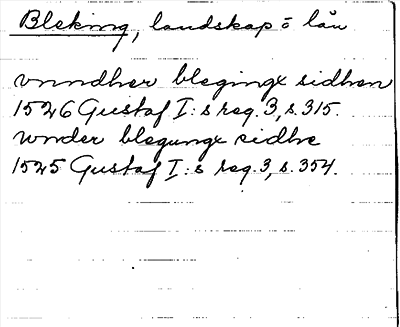 Bleking, landskap = län
vnndher blegingx sidhen
1526 Gustaf I:s reg. 3, s. 315.
wnder blegungx sidhe
1525 Gustaf I:s reg. 3, s. 354.